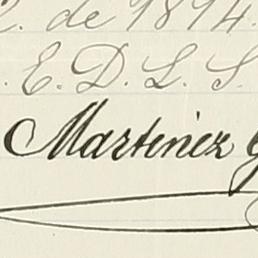 2. de 1894.
. E. D. L. S.
Martinez G